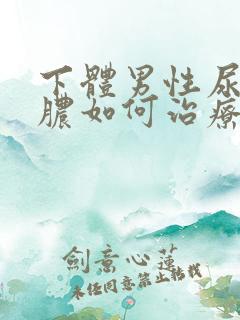 下體男性尿
膿如何治療
劍意心蓮
未经同意禁止转载